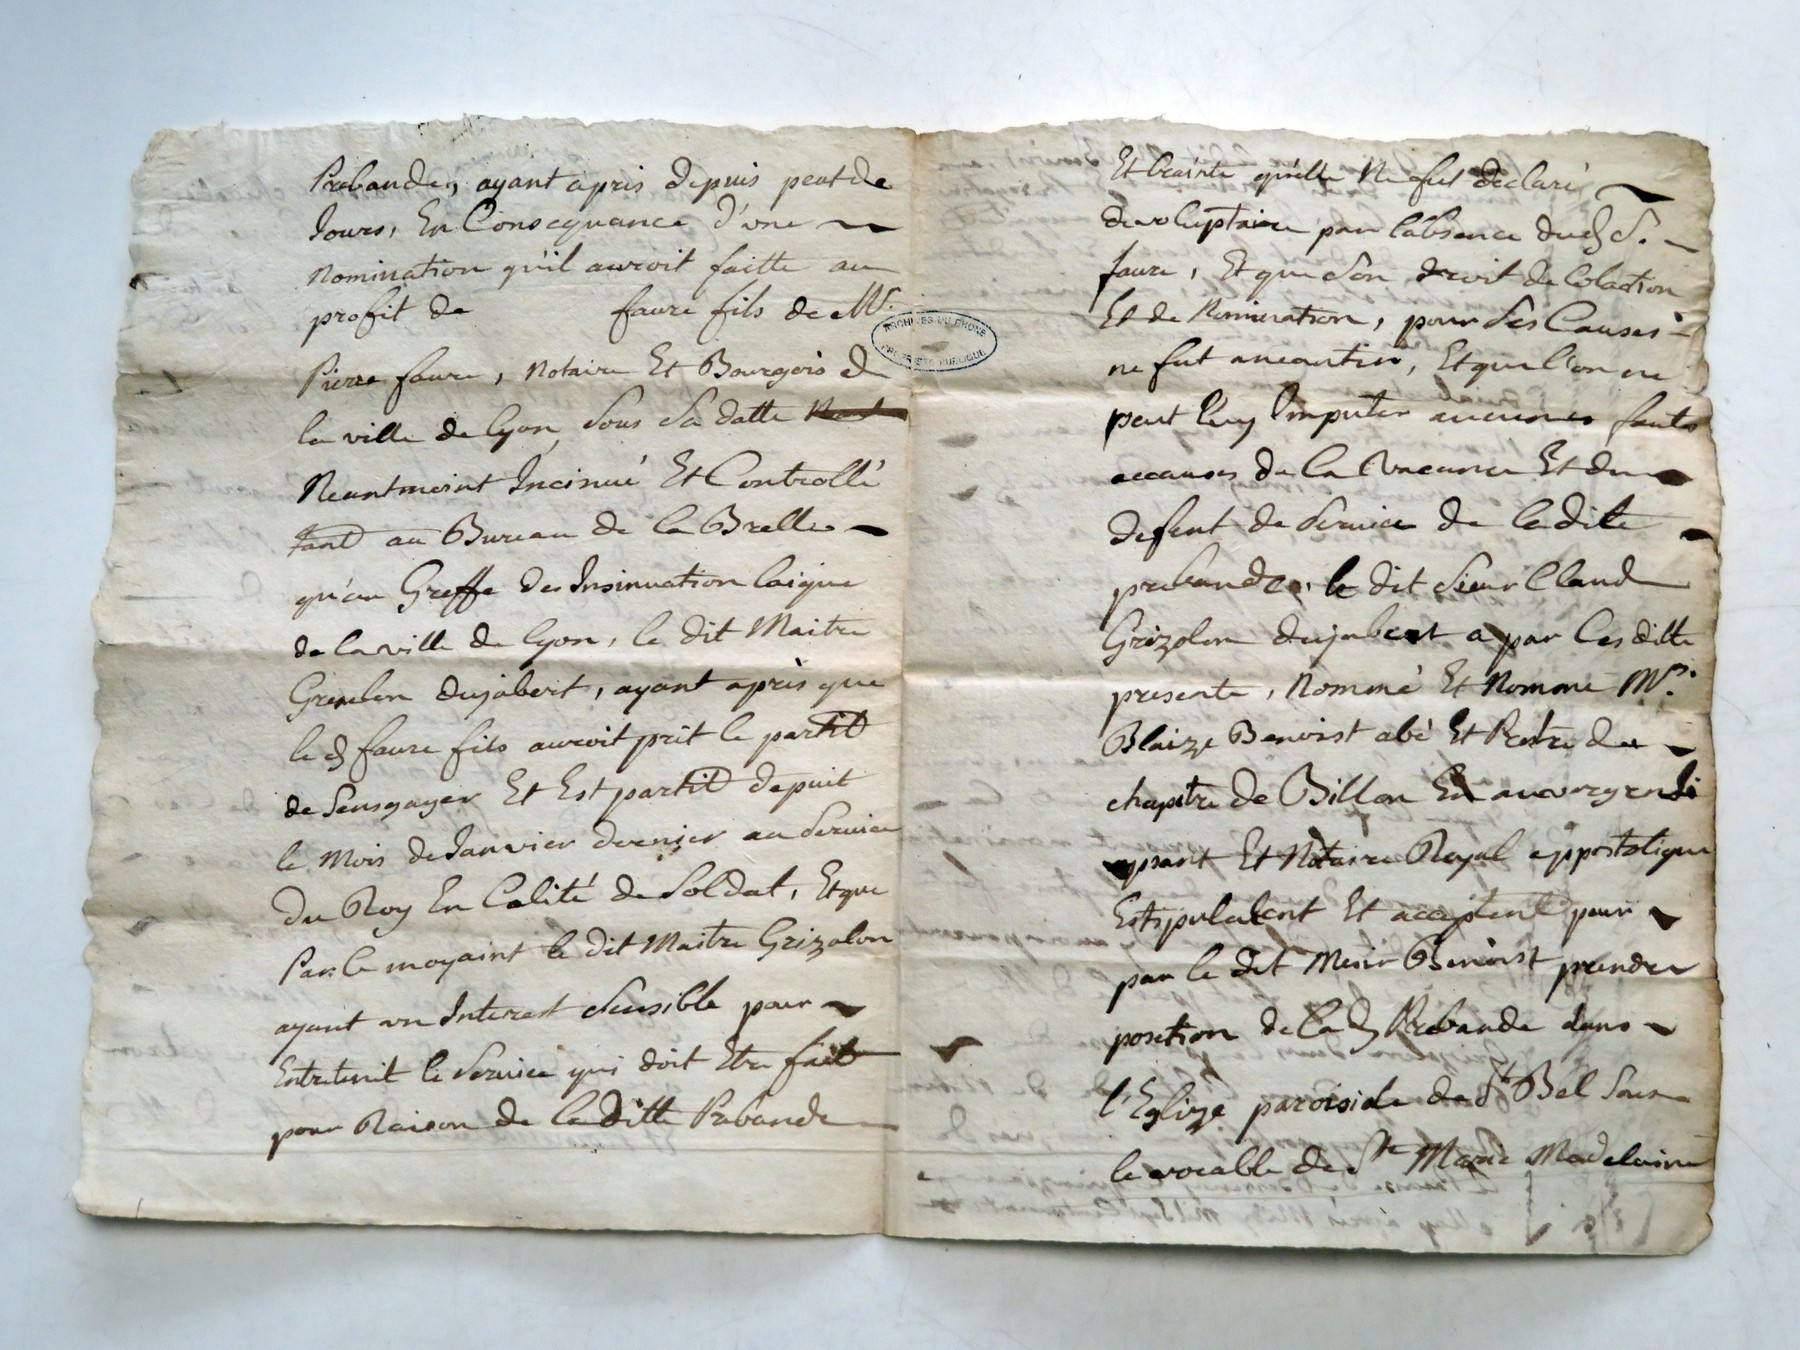 Prebande, ayant apris depuis peut de
Jours, En Consequance d'une
Nomination qu'il auroit faitte au
profit de faure fils de Mr.
ARCHIVES DU RHONE
PROPRIETE PUBLIQUE
Pierre faure, Notaire Et Bourgois d
la ville de lyon, sous sa datte
Neantmoint Incinué Et Controllé
tant au Bureau de la Brelle
qu'au Greffe des Insinuation laique
de la ville de lyon, le dit Maitre
dujabert, ayant apris que
le d faure fils auroit prit le partit
de sengager Et Est partit depuit
le Mois de Janvier dernier au Service
du Roy En Calité de Soldat, Et que
Par le moyaint le dit Maitre Grizolon
ayant un Interest sensible pour
Entretenit le Service qui doit Etre fait
pour Raison de la ditte Prebande
Et crainte qu'elle Ne fut declaré
devoluptaire par l'absence dud S.
faure, Et que son droit de Colation
Et de Nomination, pour ses Causes
ne fut aneantin, Et que l'on ne
peut luy Imputer aucunes fautes
accauses de la Vacance Et du
defent de Service de la dite
prebande, le dit sieur Claud
Grizolon dujabert a par les ditte
presente, Nommé Et Nomme Mr.
Blaize Benoist abé Et Pretre du
chapitre de Billon En auvergne
Et Notaire Royal appostolique
Estipulatent Et acceptent pour
par le dit Benoist prendre
position de la d Prebande dans
l'Eglize paroisiale de St Bel Sous
le vocable de Ste Marie Madelaine